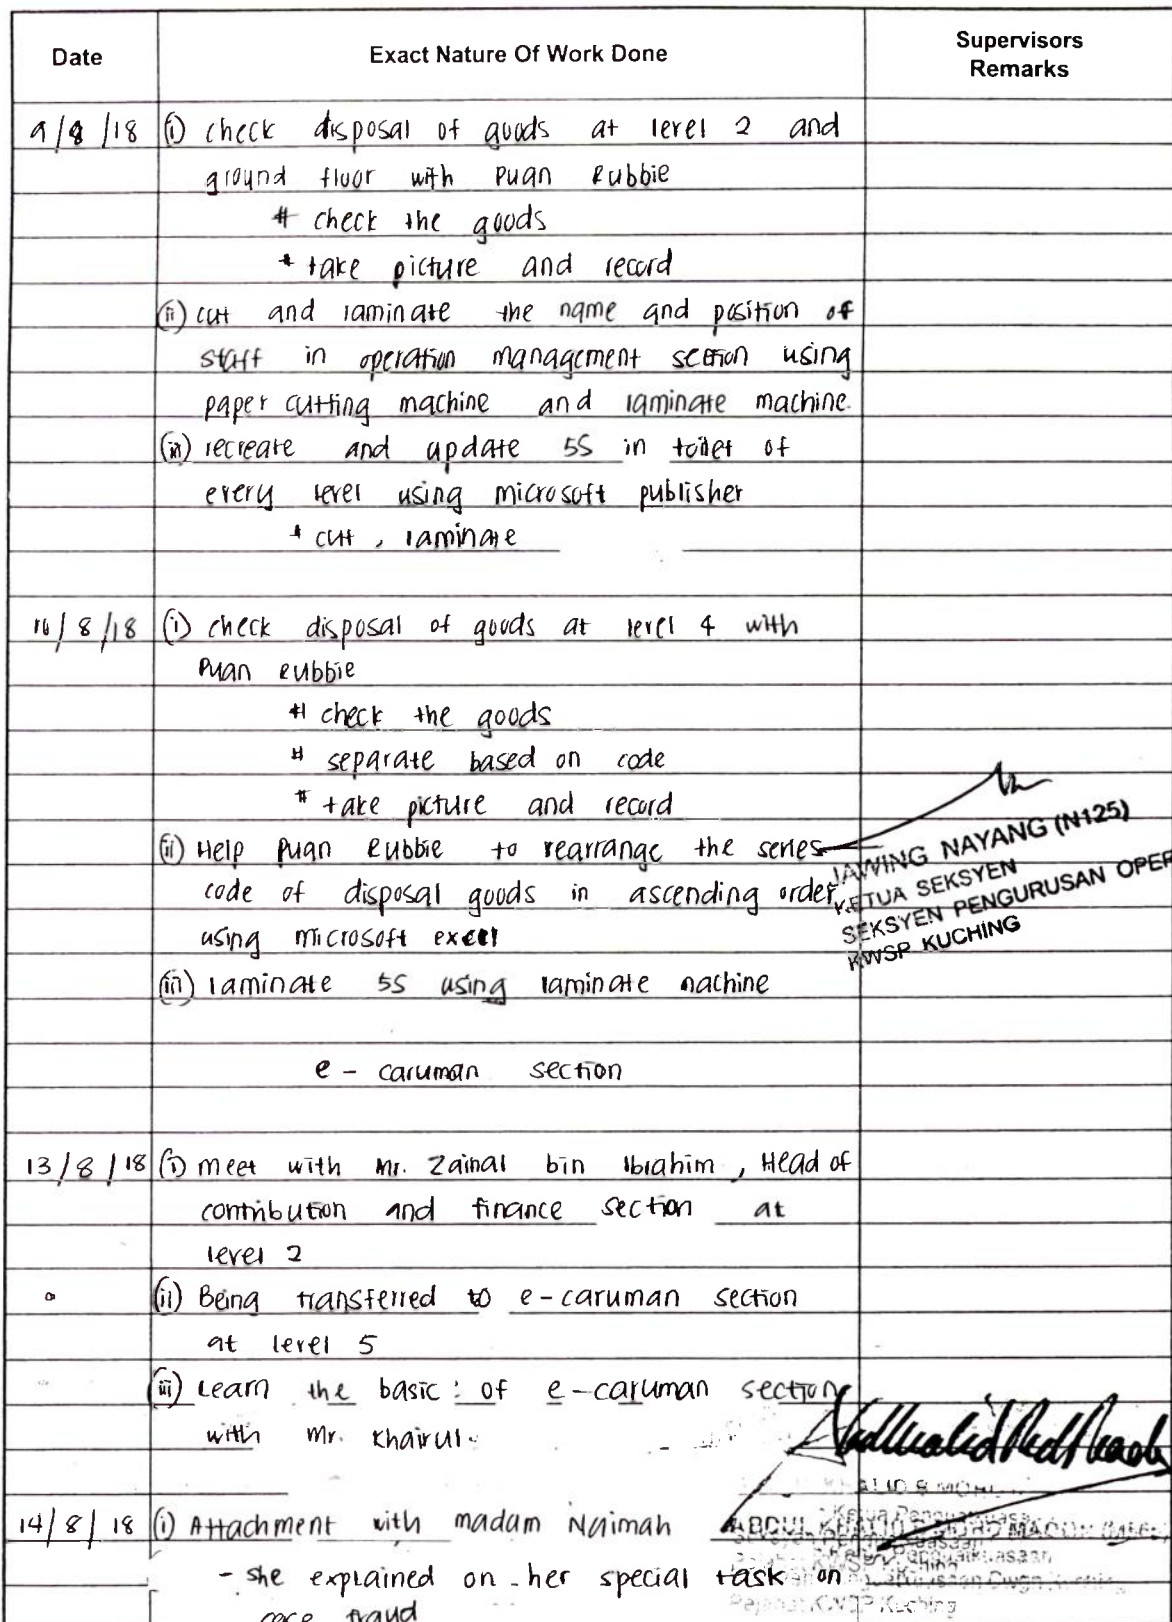 Date Exact Nature Of Work Done Supervisors
Remarks
9/8/18 (i) check disposal of goods at level 2 and
ground floor with Puan Rubbie
* check the goods
* take picture and record
(ii) cut and laminate the name and position of
staff in operation management section using
paper cutting machine and laminate machine.
(iii) recreate and update 5S in toilet of
every level using microsoft publisher
* cut , laminate
10/8/18 (i) check disposal of goods at level 4 with
Puan Rubbie
* check the goods
* separate based on code
* take picture and record
(ii) Help Puan Rubbie to rearrange the series
code of disposal goods in ascending order
using microsoft excel
JAWING NAYANG (N125)
KETUA SEKSYEN
SEKSYEN PENGURUSAN OPER
KWSP KUCHING
(iii) laminate 5S using laminate machine
e - caruman section
13/8/18 (i) meet with Mr. Zainal bin Ibrahim , Head of
contribution and finance section at
level 2
(ii) Being transferred to e-caruman section
at level 5
(iii) Learn the basic of e-caruman section
with Mr. Khairul.
14/8/18 (i) Attachment with madam Naimah
- she explained on her special task on
fraud
ABDUL KHALID
KWSP Kuching